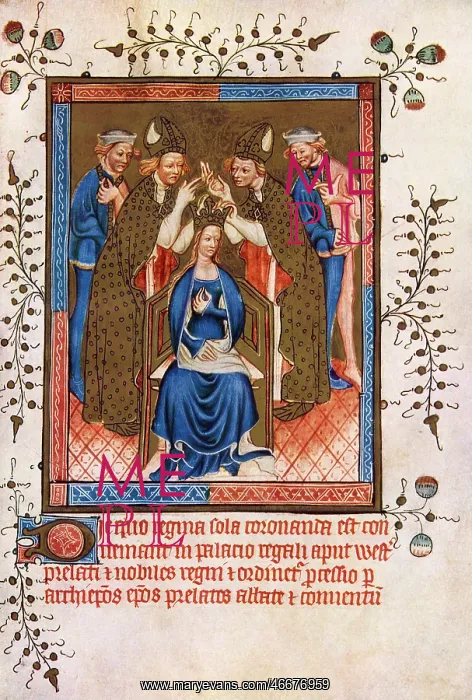 ME
PL
ME
PL
regina sola coronanda est con
in palacio regali aput west
prelati & nobiles regni & ordinet pcessio p
archiepos epos prelatos abbate & conuentu
www.maryevans.com/46676959